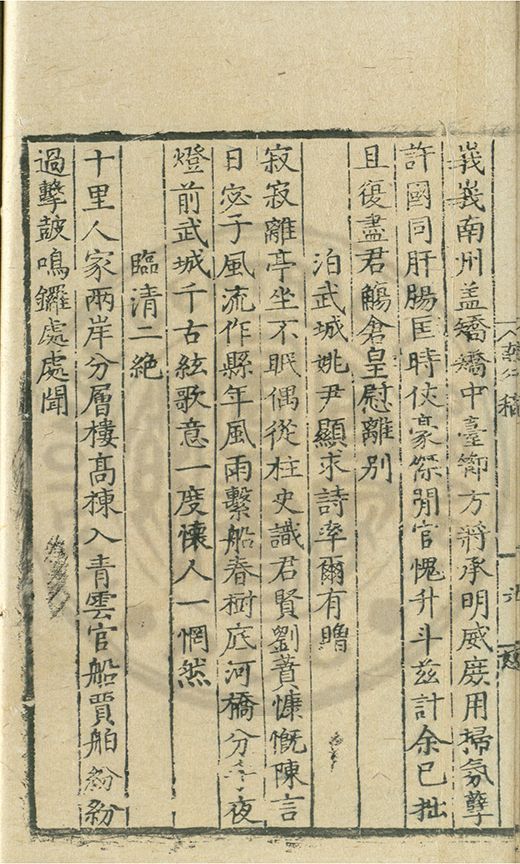 峩峩南州盖矯矯中臺節方將承明威庶用掃氛孽
許國同肝腸匡時仗豪傑閒官愧升斗兹計余已拙
且復盡君觴倉皇慰離别
泊武城姚尹顯求詩率爾有贈
寂寂離亭坐不眠偶從柱史識君賢劉蕡慷慨陳言
日宓子風流作縣年風雨繫船春樹底河橋分手夜
燈前武城千古絃歌意一度懷人一惘然
臨清二絶
十里人家兩岸分層樓髙棟入青雲官船賈舶紛紛
過擊皷鳴鑼處處聞